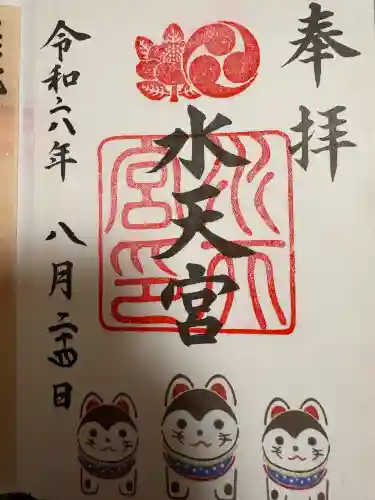 奉拝
水天宮
水天宮印
令和六年 八月二十四日